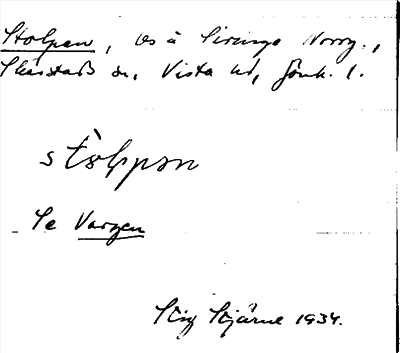 Stolpen, os å Siringe Norrg.,
Skärstads sn, Vista hd, Jönk. l.
stòlppən
Se Vargen
Stig Stjärne 1934.